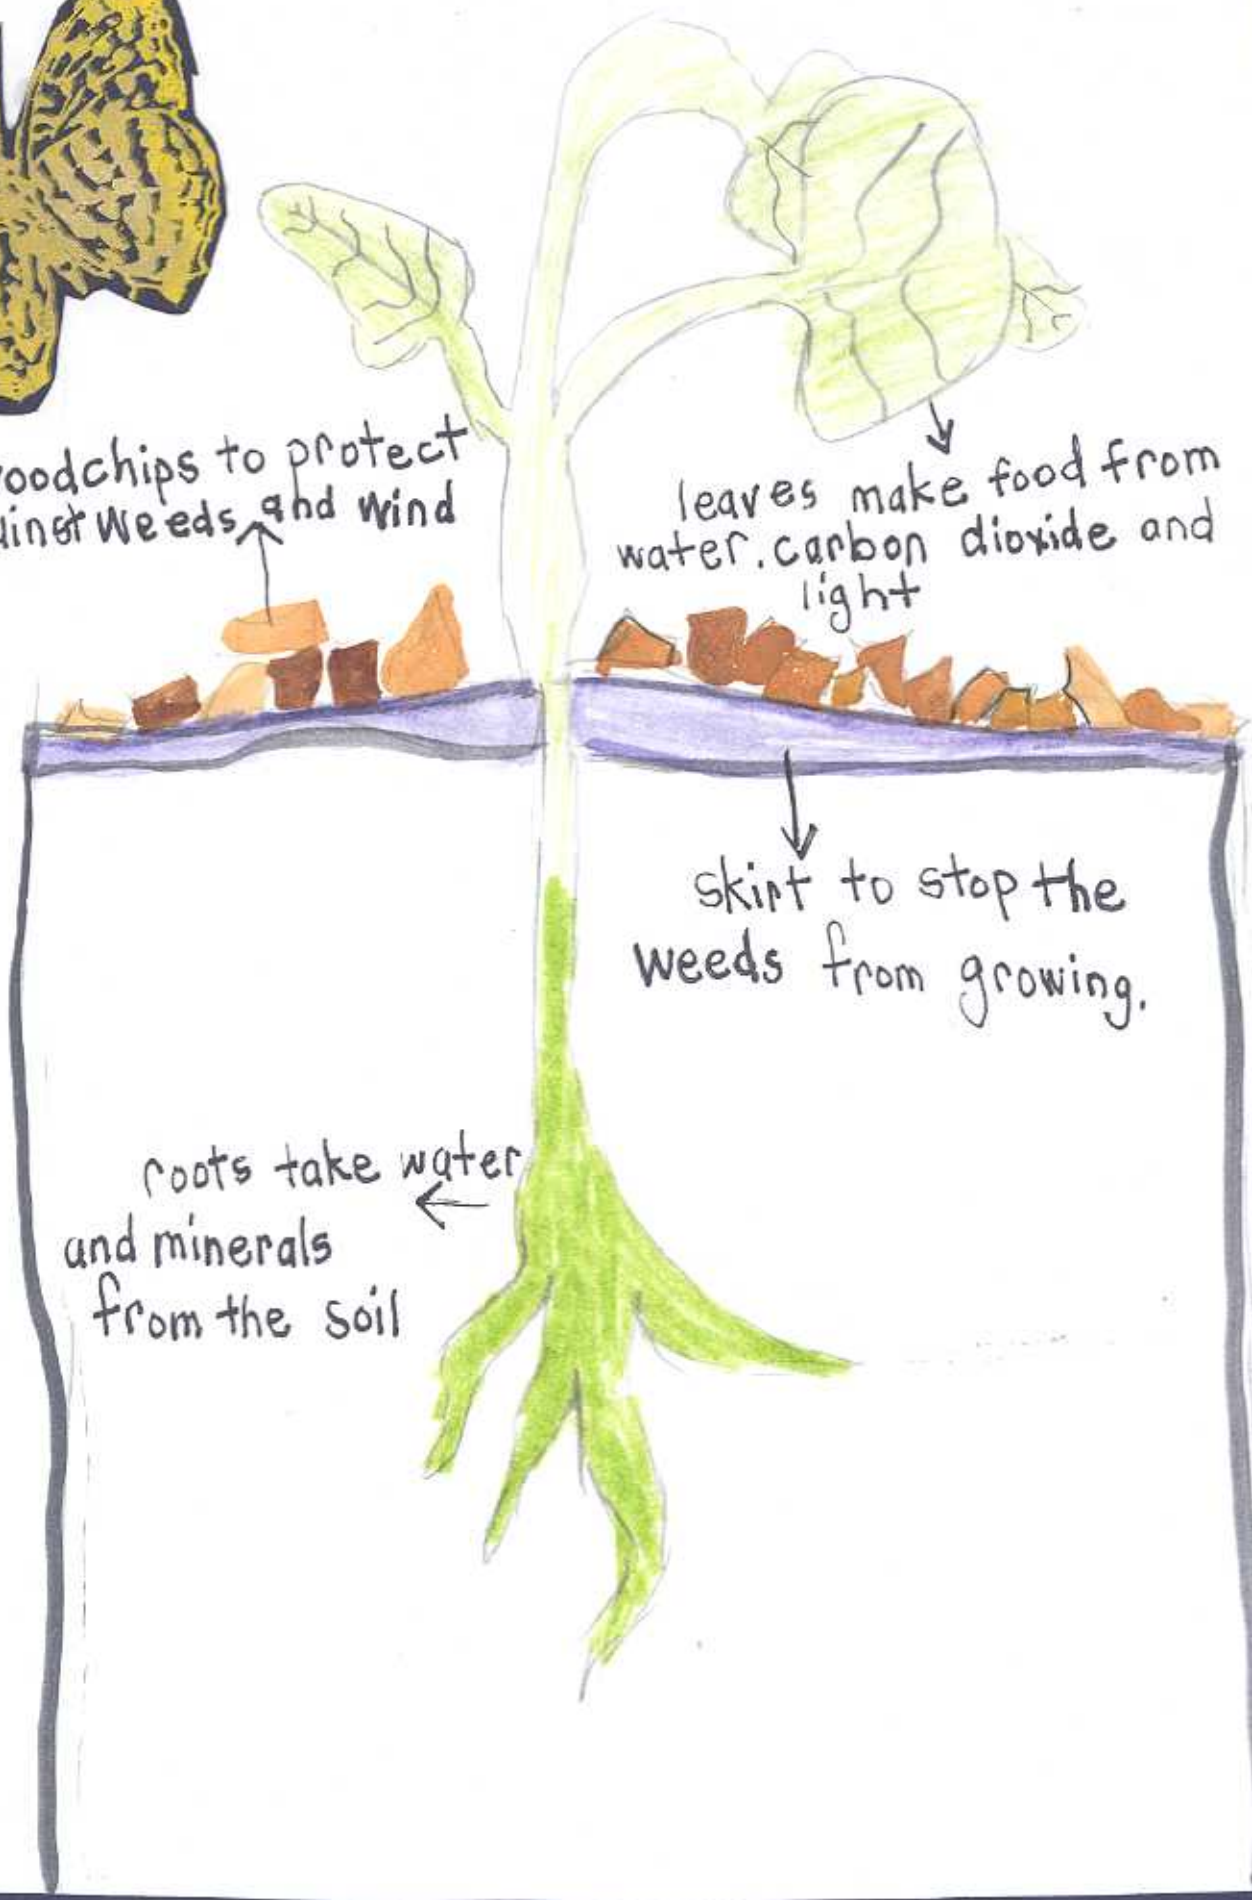 oodchips to protect
ainst weeds and wind
leaves make food from
water. carbon dioxide and
light
skirt to stop the
weeds from growing.
roots take water
and minerals
from the soil